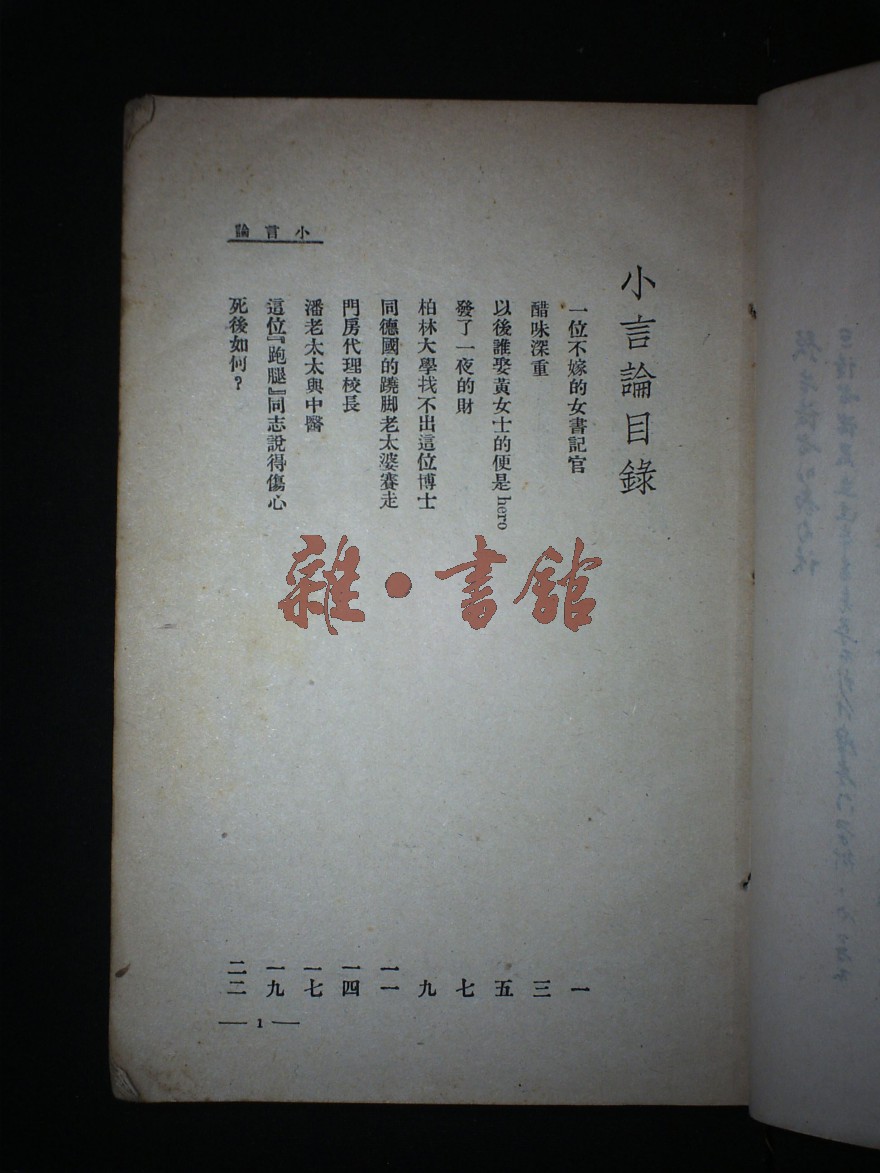 小言論目錄
一位不嫁的女書記官 一
醋味深重 三
以後誰娶黃女士的便是 hero 五
發了一夜的財 七
柏林大學找不出這位博士 九
同德國的蹺脚老太婆賽走 一一
門房代理校長 一四
潘老太太與中醫 一七
這位『跑腿』同志說得傷心 一九
死後如何？ 二二
小言論
— 1 —
雜·書館